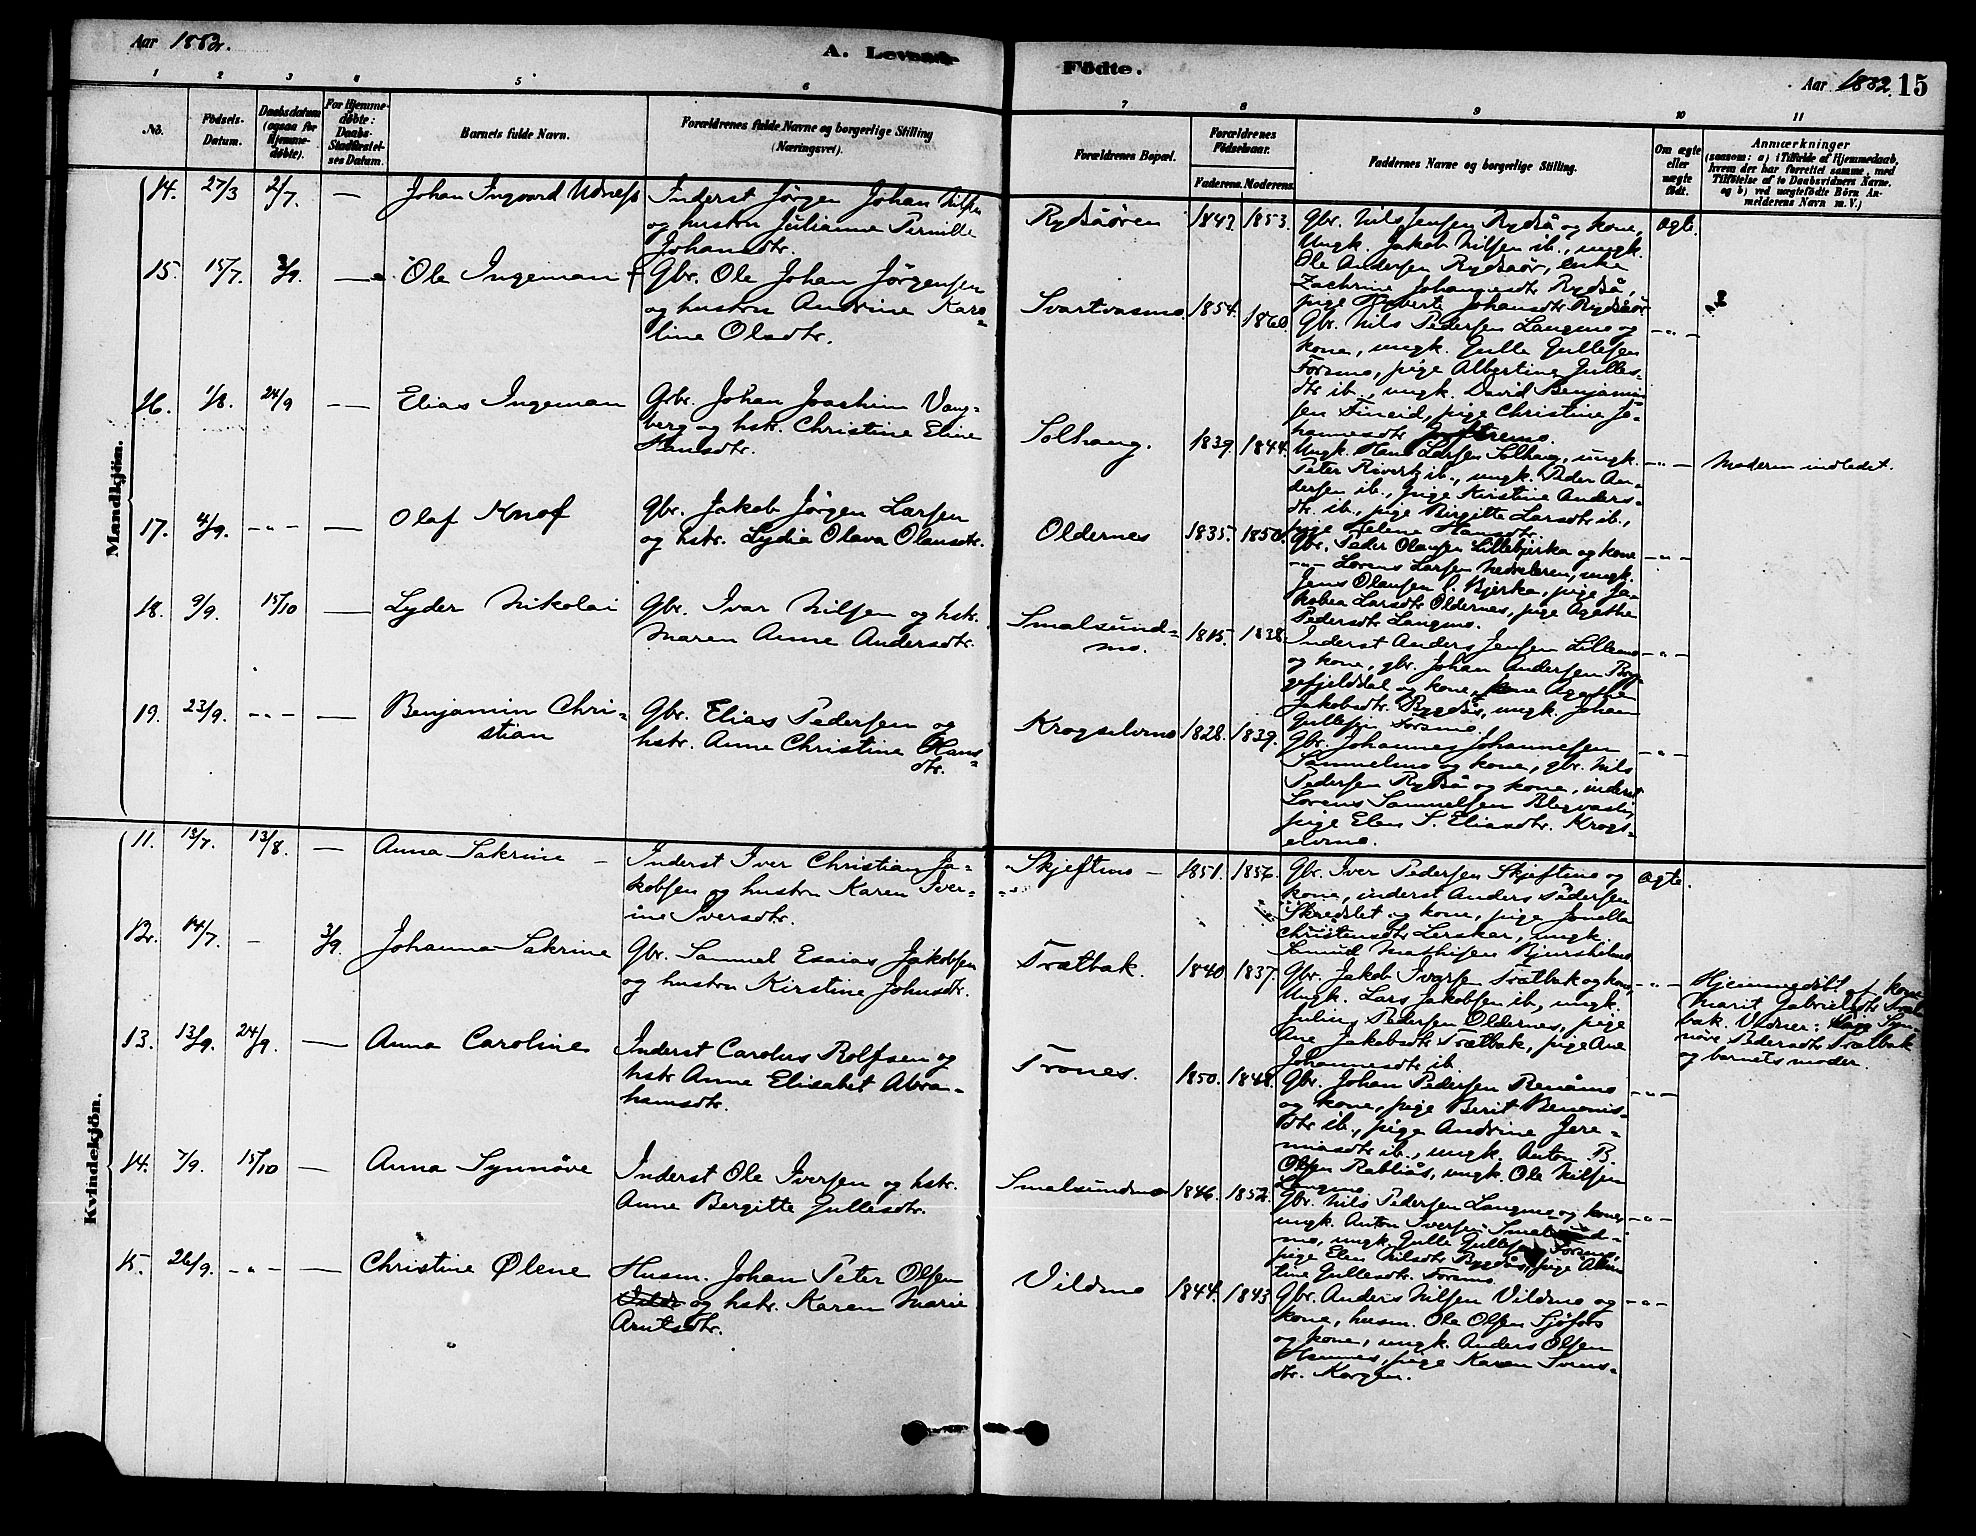 Aar 1882.
A. Levende
Födte.
Aar 1882. 15
1 2 3 4 5 6
7 8 9 10 11
No.
Födsels-Datum.
Daabsdatum (ogsaa for Hjemmedöbte).
For Hjemmedöbte: Daabs-Stadfæstelses Datum.
Barnets fulde Navn.
Forældrenes fulde Navne og borgerlige Stilling (Næringsvei).
Forældrenes Bopæl.
Forældrenes Födselsaar.
Faderens. Moderens.
Faddernes Navne og borgerlige Stilling.
Om ægte eller uægte födt.
Anmærkninger
(saasom: a) i Tilfælde af Hjemmedaab, hvem der har forrettet samme, med Tilföielse af to Daabsvidners Navne. og b) ved uægtefödte Börn Anmelderens Navn m. V.)
Mandkjön.
14. 27/3 2/7. — Johan Ingvard
Inderst Jörgen Johan Nilsen
og hustru Julianna Pernille
Johansdtr.
Rydsåören 1847. 1853.
Gbr. Nils Jensen Rydså og kone,
Ungk. Jakob Nilsen ib., ungk.
Ole Andersen Rydsåör, enke
Zachrine Johannesdtr Rydså,
pige Johansdtr Rydsåör
Ægte.
15. 15/7. 3/9. — Ole Ingeman
Gbr. Ole Johan Jörgensen
og hustru Andrine Karo-
line Olsdtr.
Svartvasmo. 1854. 1860
Gbr. Nils Pedersen Langmo og
kone, ungk. Gulle Gullesen
Forsmo, pige Albertine Gulles-
dtr ib., ungk. David Benjamin-
sen Fineid, pige Christine Jo-
hannesdtr
— " —
16. 1/8. 24/9 — Elias Ingeman
Gbr. Johan Joachim Vang-
berg og hstr. Christine Eline
Hansdtr.
Solhaug. 1839. 1844.
Ungk. Hans Larsen Solhaug, ungk.
Peter Rivertz ib., ungk. Peder An-
dersen ib., pige Kirstine Anders-
dtr ib., pige Birgitte Larsdtr ib.,
pige Helene Hansdtr.
— " — Moderen indledet.
17. 4/9. — " — — Olaf Knof
Gbr. Jakob Jörgen Larsen
og hstr. Lydia Olava Olausdtr.
Oldernes 1835. 1850.
Gbr. Peder Olausen Lillebjerka og kone
— " — Lorens Larsen Nedreleren, ungk.
Jens Olausen l. Bjerka, pige Ja-
kobea Larsdtr Oldernes, pige Agathe
Pedersdtr Langmo.
— " —
18. 9/9. 15/10 — Lyder Nikolai
Gbr. Ivar Nilsen og hstr.
Maren Anne Andersdtr.
Smalsund-
mo. 1838.
Inderst Anders Jensen Lillemo
og kone, gbr. Johan Andersen Byg-
gefjelddal og kone, Agathe
Jakobsdtr. Bygdås, ungk. Johan
Gullesen Forsmo.
— " —
19. 23/9. — " — — Benjamin Chri-
stian
Gbr. Elias Pedersen og
hstr. Anne Christine Hans-
dtr.
Krogselvmo 1828. 1839.
Gbr. Johannes Johannesen
Sammelmo og kone, gbr. Nils
Pedersen Rydså og kone, inderst
Lorens Samuelsen
pige Elen S. Eliasdtr. Krogs-
elvmo.
— " —
Kvindekjön.
11. 13/7. 13/8. — Anna Sakrine —
Inderst Iver Christian Ja-
kobsen og hustru Karen Iver-
ine Iversdtr.
Skjeftmo — 1851. 1856.
Gbr. Iver Pedersen Skjeftmo og
kone, inderst Anders Pedersen
Skredslet og kone, pige Jonella
Christensdtr Lerskar, ungk.
Mathisen
Ægte.
12. 14/7. — 3/9. Johanna Sakrine
Gbr. Sammel Esaias Jakobsen
og hustru Kirstine Johnsdtr.
Trætbak. 1840 1837.
Gbr. Jakob Ivarsen Trætbak og kone,
Ungk. Lars Jakobsen ib, ungk.
Julius Pedersen Oldernes, pige
Ane Jakobsdtr Trætbak, pige Ane
Johannesdtr ib.
— " —
Hjemmedöbt af kone
Marit Gabrielsdtr Træt-
bak. Vidner: Syn-
növe Pedersdtr Trætbak
og barnets moder.
13. 13/9. 24/9. — Anna Caroline
Inderst Carolus Rolfsen og
hstr Anne Elisabet Abra-
hamsdtr.
Trones. 1850. 1848.
Gbr. Johan Pedersen Renåmo
og kone, pige Berit Benonis-
dtr ib., pige Andrine Jere-
miasdtr ib., ungk. Anton B.
Olsen Rabliås, ungk. Ole Nilsen
Langmo.
— " —
14. 7/9. 15/10 — Anna Synnöve
Inderst Ole Iversen og hstr.
Anne Bergitte Gullesdtr.
Smalsundmo 1846. 1852.
Gbr. Nils Pedersen Langmo og kone,
ungk. Anton Iversen Smalsund-
mo, ungk. Gulle Gullesen Forsmo,
pige Elen Nilsdtr Bygdås, pige
Gullesdtr. Forsmo.
— " —
15. 26/9. — " — — Christine Ölene
Husm. Johan Peter Olsen
og hstr. Karen Marie
Arntsdtr.
Vildmo 1844. 1843
Gbr. Anders Nilsen Vildmo og
kone, husm. Ole Olsen Sjöfors
og kone, ungk. Anders Olsen
pige Karen Ivers-
dtr. Korgen.
— " —